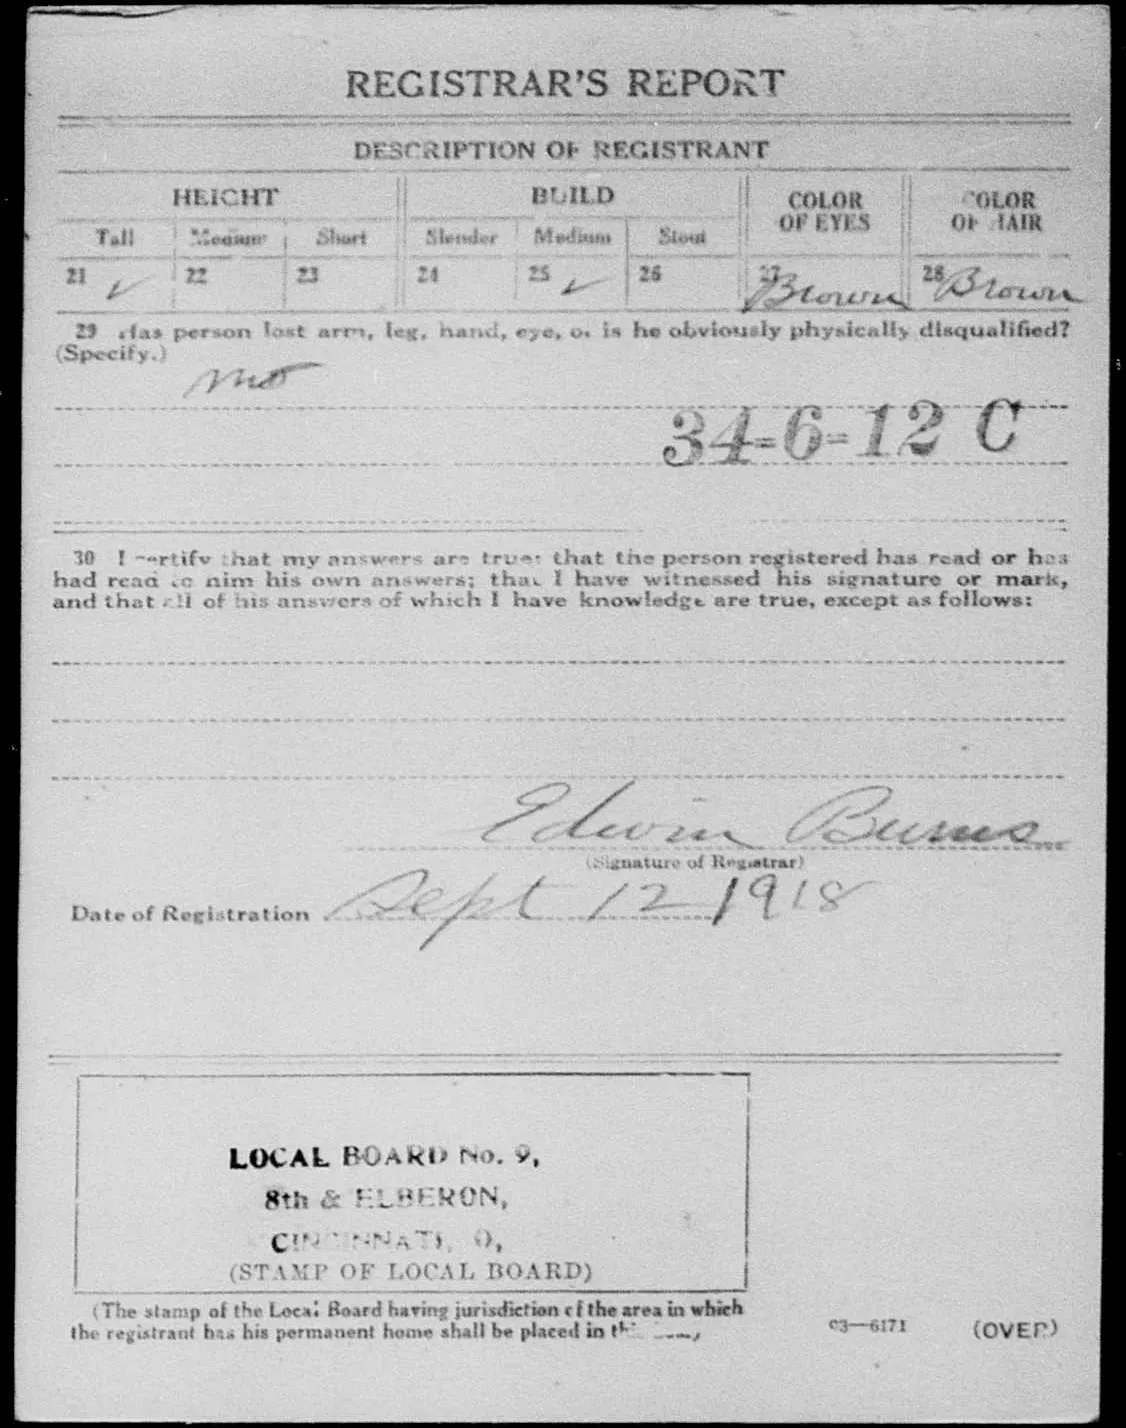 REGISTRAR'S REPORT
DESCRIPTION OF REGISTRANT
HEIGHT BUILD COLOR OF EYES COLOR OF HAIR
Tall Medium Short Slender Medium Stout
21 ✓ 22 23 24 25 ✓ 26 27 Brown 28 Brown
29 Has person lost arm, leg, hand, eye, or is he obviously physically disqualified?
(Specify.)
no
34=6=12 C
30 I certify that my answers are true; that the person registered has read or has
had read to him his own answers; that I have witnessed his signature or mark,
and that all of his answers of which I have knowledge are true, except as follows:
Edwin Burns
(Signature of Registrar)
Date of Registration Sept 12 1918
LOCAL BOARD No. 9,
8th & ELBERON,
CINCINNATI, O,
(STAMP OF LOCAL BOARD)
(The stamp of the Local Board having jurisdiction of the area in which
the registrant has his permanent home shall be placed in this
03—6171 (OVER)